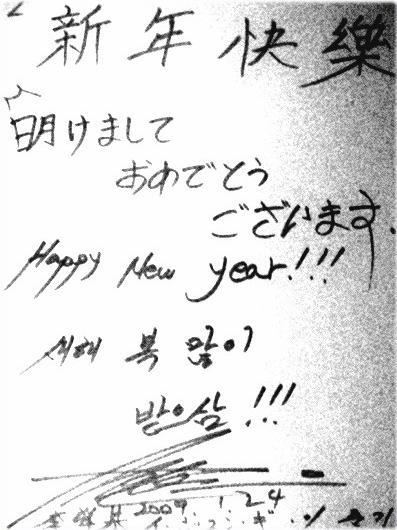 新年快樂
明けまして
おめでとう
ございます.
Happy New year!!!
새해 복 많이
받으삼!!!
2009 1 24